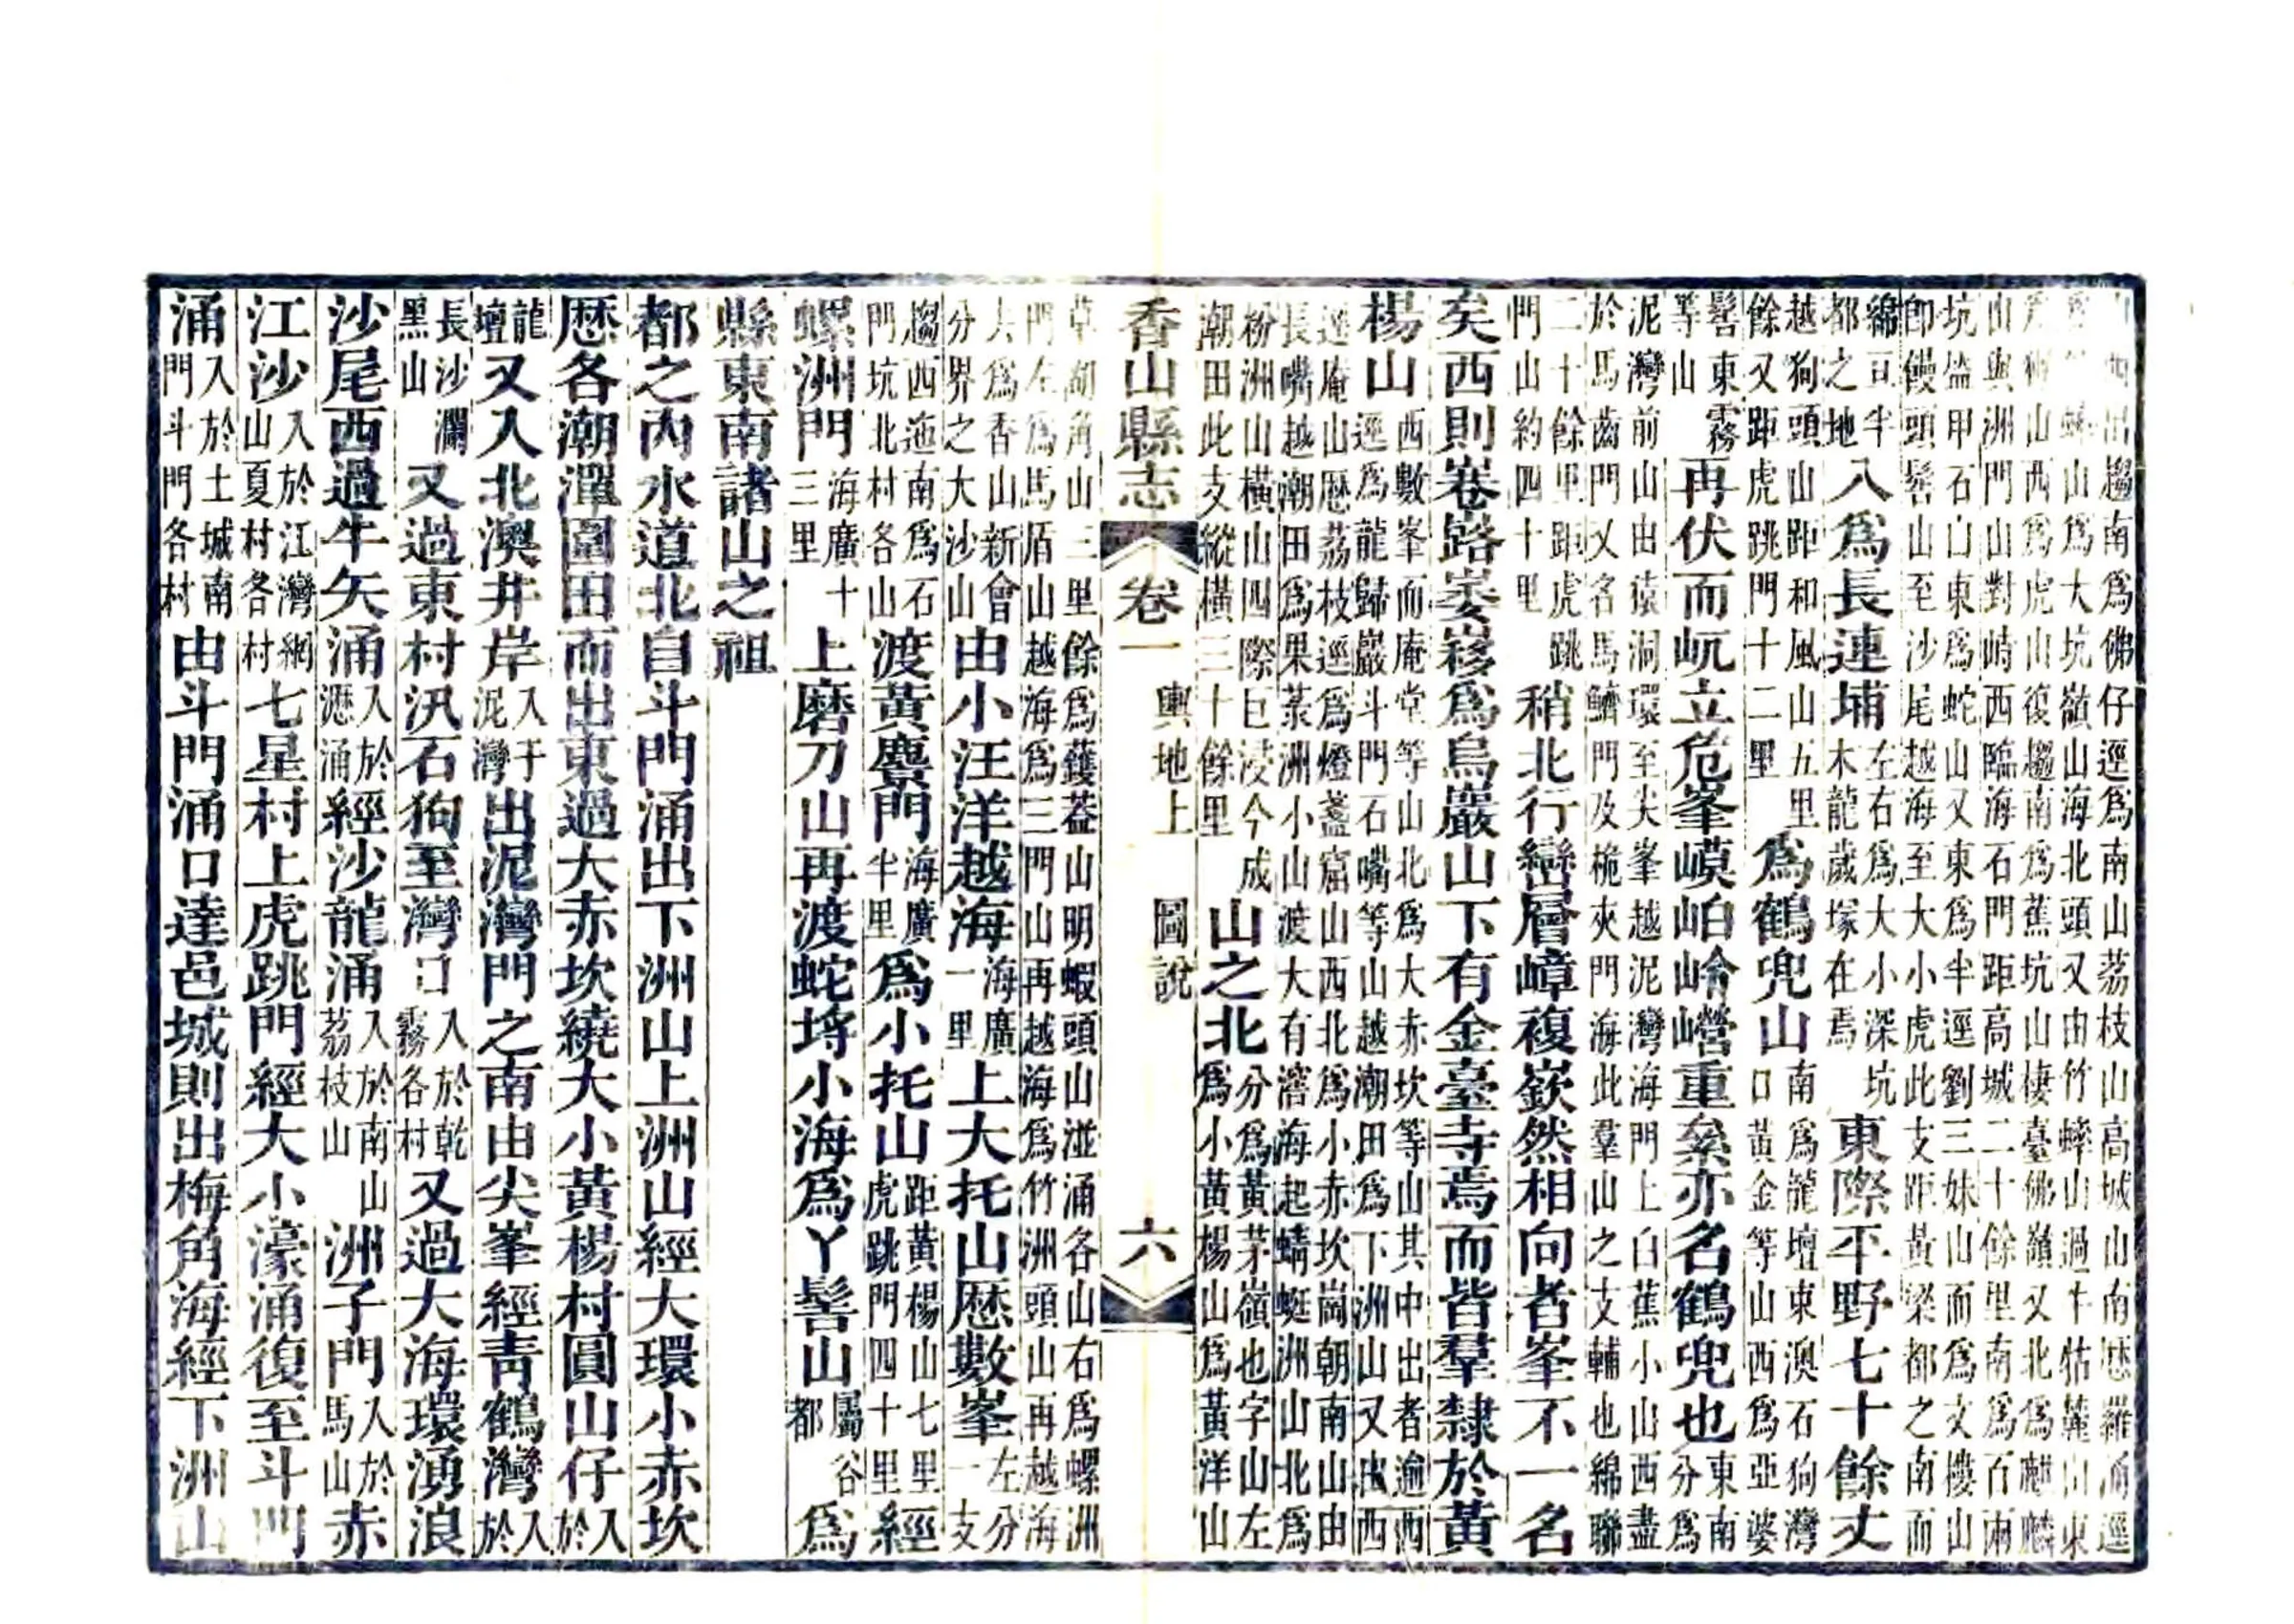 西出趨南爲佛仔逕爲南山荔枝山高城山南歷羅涌逕
蟀山爲大坑嶺山海北頭又由竹蟀山過牛牯麓山東
山西爲虎山復趨南爲蕉坑山棲臺佛嶺又北爲麒麟
山與洲門山對峙西臨海石門距高城二十餘里南爲百兩
坑塩甲石山東爲蛇山又東爲半逕劉三妹山而爲文樓山
卽饅頭髻山至沙尾越海至大小虎此支距黃梁都之南而
綿亘半都之地八爲長連埔左右爲大小深坑木龍歲塚在焉東際平野七十餘丈
越狗頭山距和風山五里餘又距虎跳門十二里爲鶴兜山南爲龍壇東澳石狗灣口黃金等山西爲亞婆
髻東霧等山再伏而岏立危峯嵮岶重絫亦名鶴兜也東南分爲
泥灣前山由蓢洞環至尖峯越泥灣海門上白蕉小山西盡
於馬齒門又名馬鱭門及桅夾門海此羣山之支輔也綿聯
二十餘里距虎跳門山約四十里稍北行巒層嶂複嶔然相向者峯不一名
矣西則峑路崣嵺爲烏巖山下有金臺寺焉而皆羣隸於黃
楊山西數峯而庵堂等山北爲大赤坎等山其中出者逾西逕爲龍歸巖斗門石嘴等山越潮田爲下洲山又由西
逕庵山歷荔枝逕爲燈盞窟山西北爲小赤坎崗朝南山由
長嘴越潮田爲果菉洲小山渡大有濱海起蜻蜓洲山北爲
粉洲山橫山四際巨浸今成潮田此支縱橫三十餘里山之北分爲黃茅嶺也字山左爲小黃楊山爲黃洋山
香山縣志 卷一 輿地上 圖說 六
草湖角山三里餘爲鑊蓋山明蝦頭山湴涌各山右爲螺洲
門左爲馬盾山越海爲三門山再越海爲竹洲頭山再越海
大爲香山新會分界之大沙山由小汪洋越海海廣一里上大托山歷數峯左分一支
趨西迤南爲石門坑北村各山渡黃麖門海廣半里爲小托山距黃楊山七里虎跳門四十里經
螺洲門海廣十三里上磨刀山再渡蛇埒小海爲丫髻山屬谷都爲
縣東南諸山之祖
都之內水道北自斗門涌出下洲山上洲山經大環小赤坎
歷各潮潭圍田而出東過大赤坎繞大小黃楊村圓山仔入於
龍壇又入北澳井岸入于泥灣出泥灣門之南由尖峯經靑鶴灣入於
長沙瀾黑山又過東村汛石狗至灣口入於乾霧各村又過大海環湧浪
沙尾西過牛矢涌入於瀝涌經沙龍涌入於南山荔枝山洲子門入於馬山赤
江沙入於江灣網山夏村各村七星村上虎跳門經大小濠涌復至斗門
涌入於土城南門斗門各村由斗門涌口達邑城則出梅角海經下洲山